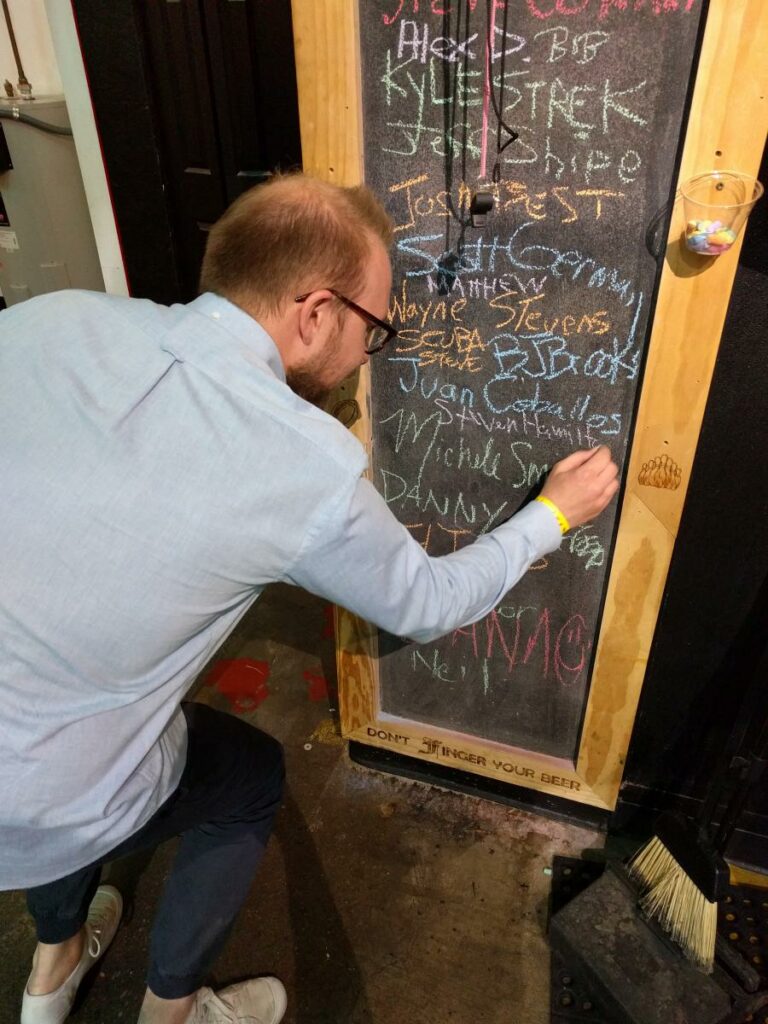 Alex D. BIB
KYLE STREK
Jeff Shipe
JOSH BEST
Scott Germany
MATTHEW
Wayne Stevens
SCUBA
STEVE
BJ Brooks
Juan Ceballos
Steven Hamilto
Michele Sm
DANNY
Neil
DON'T FINGER YOUR BEER